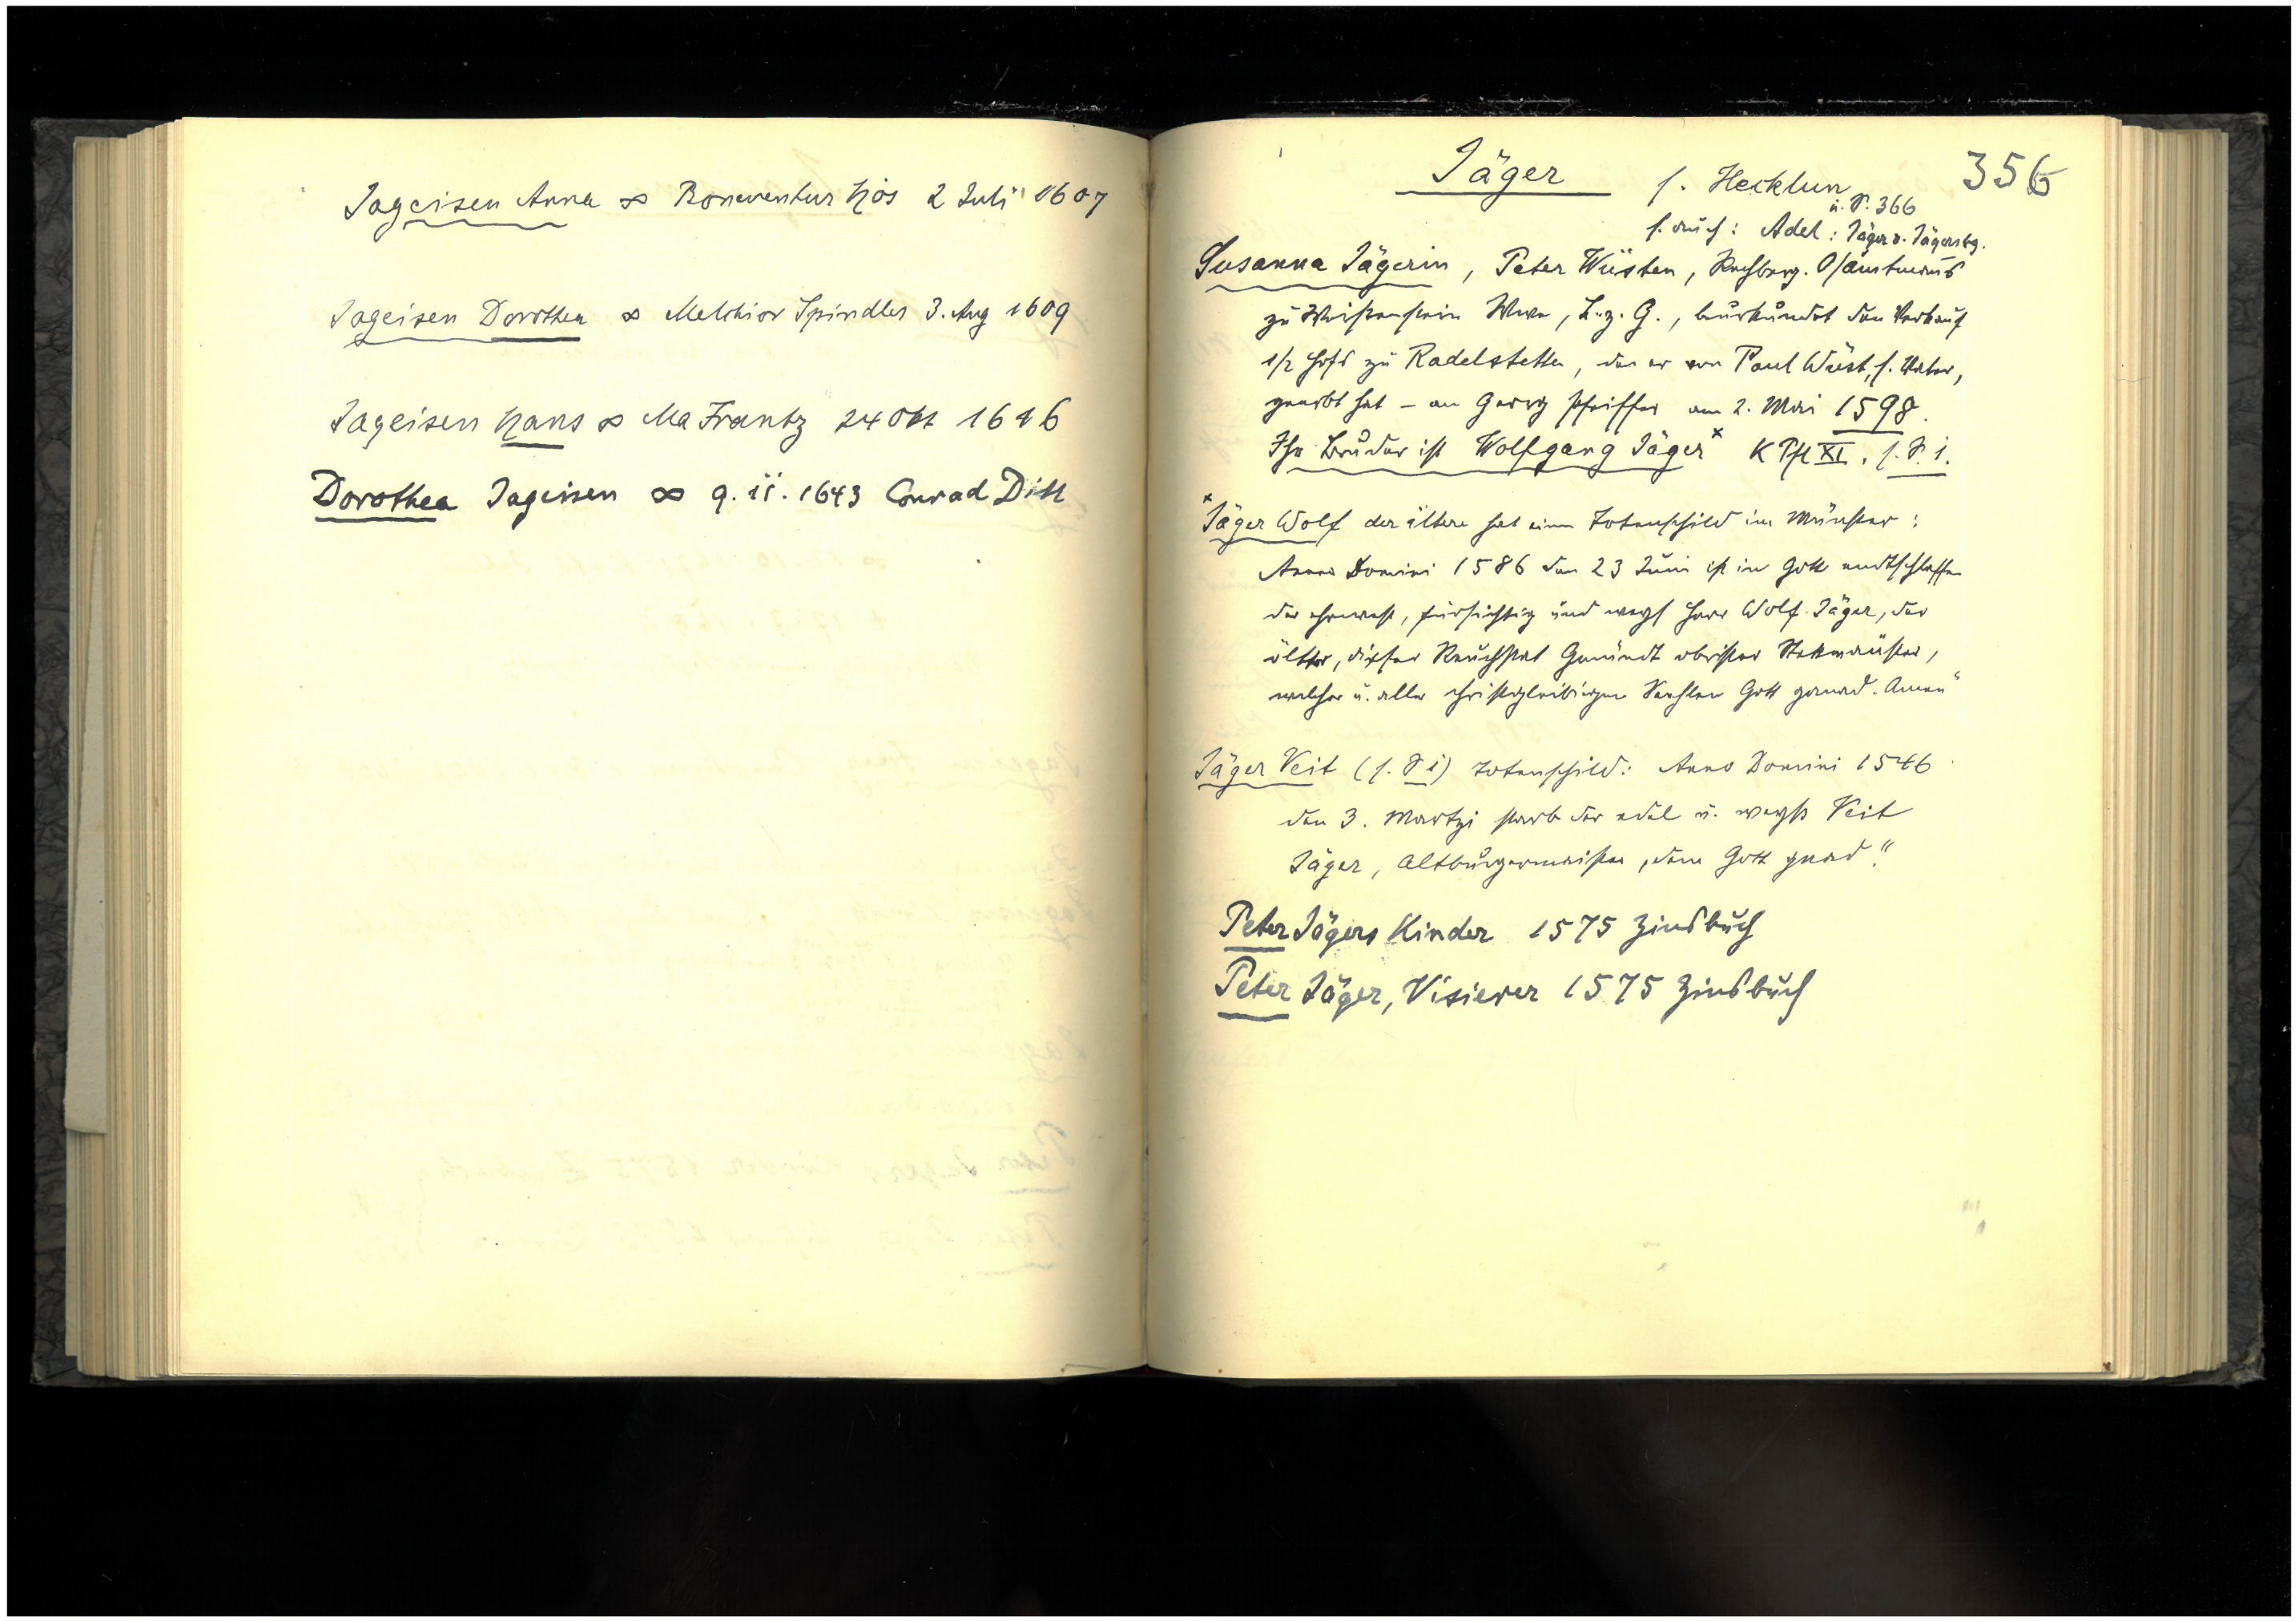 Jageisen Anna ∞ Bonaventur Hös 2 Juli 1607
Jageisen Dorothea ∞ Melchior Spindler 3. Aug 1609
Jageisen Hans ∞ Ma Frantz 24 Okt 1616
Dorothea Jageisen ∞ 9. II. 1643 Conrad Ditt
356
Jäger s. Hecklun
u. S. 366
s. auch: Adel: Jäger v. Jägersbg.
Susanna Jägerin, Peter Wüsten, Rechberg. O/amtmanns
zu Weißenstein Wwe, B. z. G., beurkundet den Verkauf
1/2 Hofs zu Radelstetten, den er von Paul Wüst, s. Vater,
geerbt hat – an Georg Pfeiffer am 2. Mai 1598.
Ihr Bruder ist Wolfgang Jäger x K Pfl XI. s. S. 1.
x Jäger Wolf der ältere hat einen Totenschild im Münster:
Anno Domini 1586 den 23 Juni ist in Gott endtschlaffen
der ehrnvest, fürsichtig und weys Herr Wolf Jäger, der
ölter, dißer Reuchstat Gmündt obrister Stettmaister,
welcher u. aller christgleibigen Seehlen Gott genad. Amen"
Jäger Veit (s. S 1) Totenschild: Anno Domini 1546
den 3. Martzi starb der edel u. weyß Veit
Jäger, Altburgermeister, dem Gott gnad."
Peter Jägers Kinder 1575 Zinsbuch
Peter Jäger, Visierer 1575 Zinsbuch